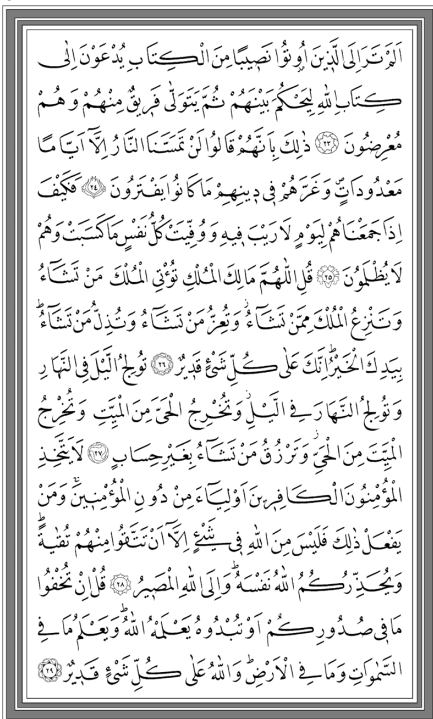 اَلَمْ تَرَ اِلَى الَّذٖينَ اُو۫تُوا نَصٖيبًا مِنَ الْكِتَابِ يُدْعَوْنَ اِلٰى
كِتَابِ اللّٰهِ لِيَحْكُمَ بَيْنَهُمْ ثُمَّ يَتَوَلّٰى فَرٖيقٌ مِنْهُمْ وَهُمْ
مُعْرِضُونَ ﴿٢٣﴾ ذٰلِكَ بِاَنَّهُمْ قَالُوا لَنْ تَمَسَّنَا النَّارُ اِلَّٓا اَيَّامًا
مَعْدُودَاتٍ وَغَرَّهُمْ فٖي دٖينِهِمْ مَا كَانُوا يَفْتَرُونَ ﴿٢٤﴾ فَكَيْفَ
اِذَا جَمَعْنَاهُمْ لِيَوْمٍ لَا رَيْبَ فٖيهِ وَوُفِّيَتْ كُلُّ نَفْسٍ مَا كَسَبَتْ وَهُمْ
لَا يُظْلَمُونَ ﴿٢٥﴾ قُلِ اللّٰهُمَّ مَالِكَ الْمُلْكِ تُؤْتِي الْمُلْكَ مَنْ تَشَٓاءُ
وَتَنْزِعُ الْمُلْكَ مِمَّنْ تَشَٓاءُؗ وَتُعِزُّ مَنْ تَشَٓاءُ وَتُذِلُّ مَنْ تَشَٓاءُؕ
بِيَدِكَ الْخَيْرُؕ اِنَّكَ عَلٰى كُلِّ شَيْءٍ قَدٖيرٌ ﴿٢٦﴾ تُولِجُ الَّيْلَ فِي النَّهَارِ
وَتُولِجُ النَّهَارَ فِي الَّيْلِؗ وَتُخْرِجُ الْحَيَّ مِنَ الْمَيِّتِ وَتُخْرِجُ
الْمَيِّتَ مِنَ الْحَيِّؗ وَتَرْزُقُ مَنْ تَشَٓاءُ بِغَيْرِ حِسَابٍ ﴿٢٧﴾ لَا يَتَّخِذِ
الْمُؤْمِنُونَ الْكَافِرٖينَ اَوْلِيَٓاءَ مِنْ دُونِ الْمُؤْمِنٖينَۚ وَمَنْ
يَفْعَلْ ذٰلِكَ فَلَيْسَ مِنَ اللّٰهِ فٖي شَيْءٍ اِلَّٓا اَنْ تَتَّقُوا مِنْهُمْ تُقٰيةًؕ
وَيُحَذِّرُكُمُ اللّٰهُ نَفْسَهُؕ وَاِلَى اللّٰهِ الْمَصٖيرُ ﴿٢٨﴾ قُلْ اِنْ تُخْفُوا
مَا فٖي صُدُورِكُمْ اَوْ تُبْدُوهُ يَعْلَمْهُ اللّٰهُؕ وَيَعْلَمُ مَا فِي
السَّمٰوَاتِ وَمَا فِي الْاَرْضِؕ وَاللّٰهُ عَلٰى كُلِّ شَيْءٍ قَدٖيرٌ ﴿٢٩﴾